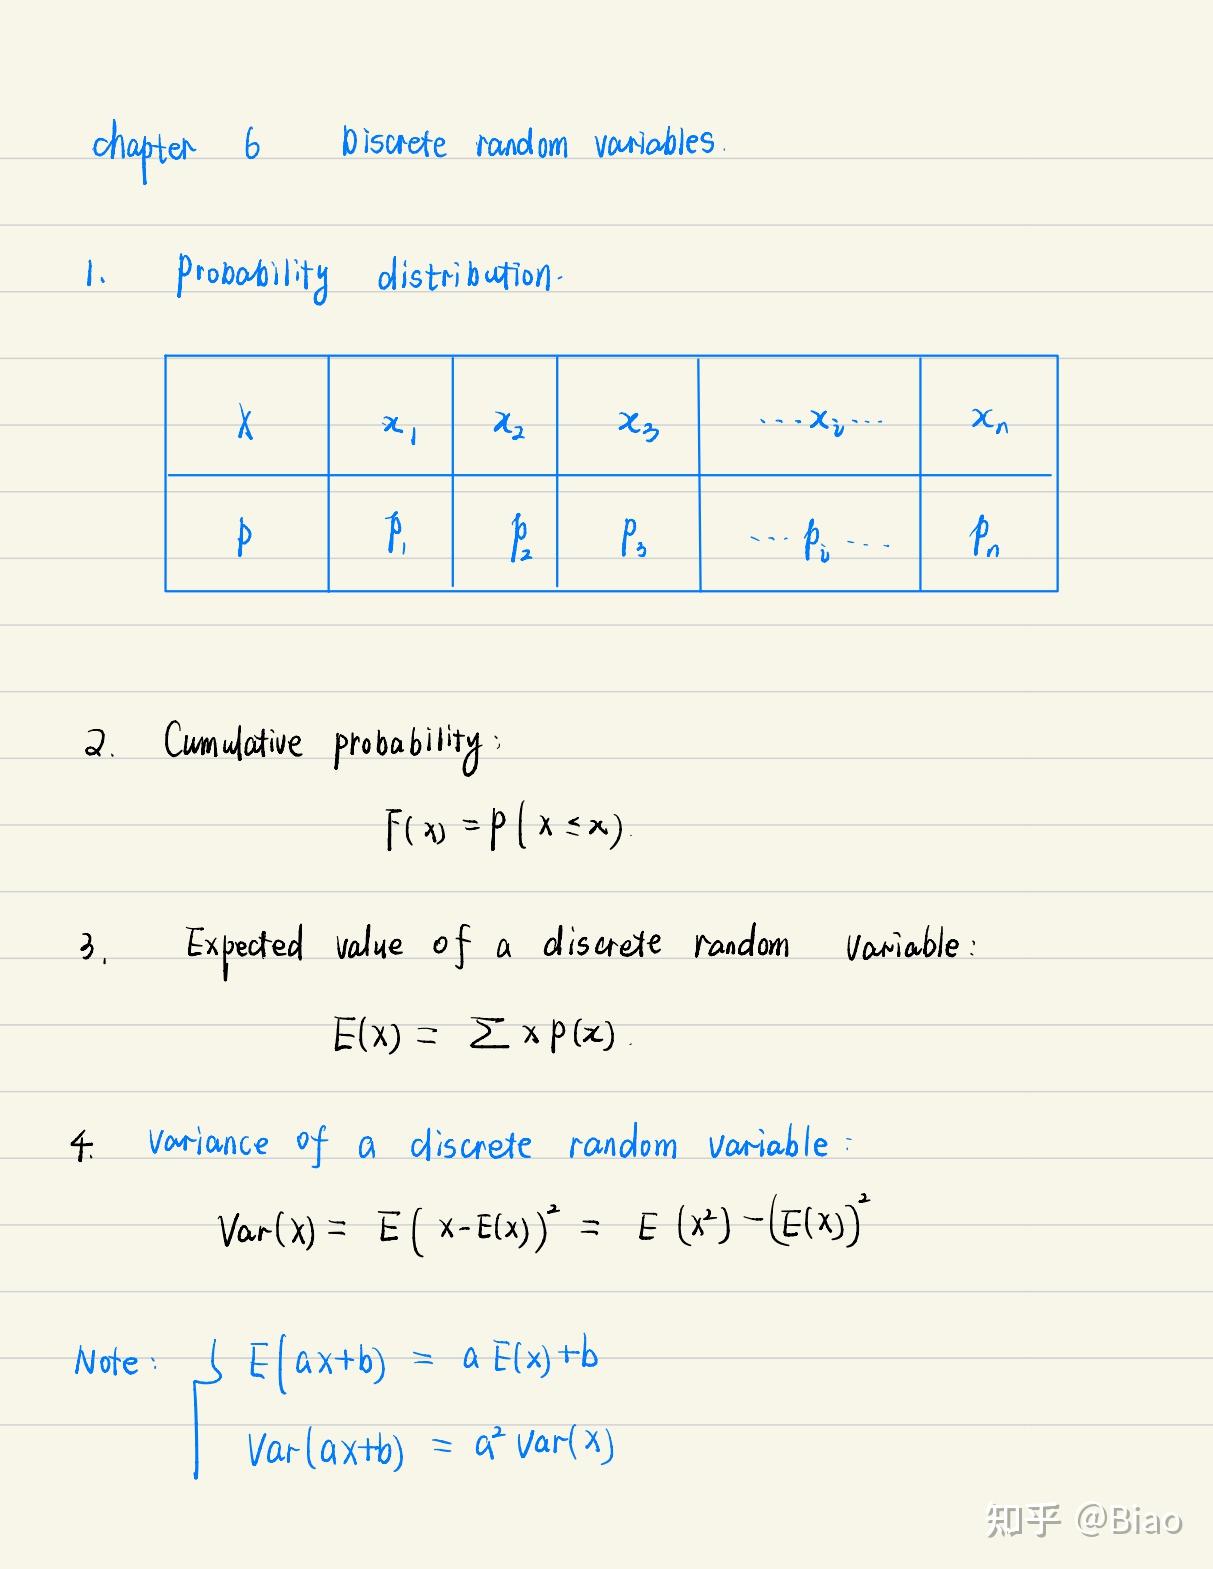 chapter 6 Discrete random variables.
1. Probability distribution.
X x₁ x₂ x₃ ...xᵢ... xₙ
P P₁ P₂ P₃ ...pᵢ... Pₙ
2. Cumulative probability:
F(x) = P(X ≤ x).
3. Expected value of a discrete random variable:
E(X) = Σ x p(x).
4. Variance of a discrete random variable:
Var(X) = E(X-E(X))² = E(X²) - (E(X))²
Note: { E(ax+b) = a E(x)+b
Var(ax+b) = a² Var(X)
知乎 @Biao